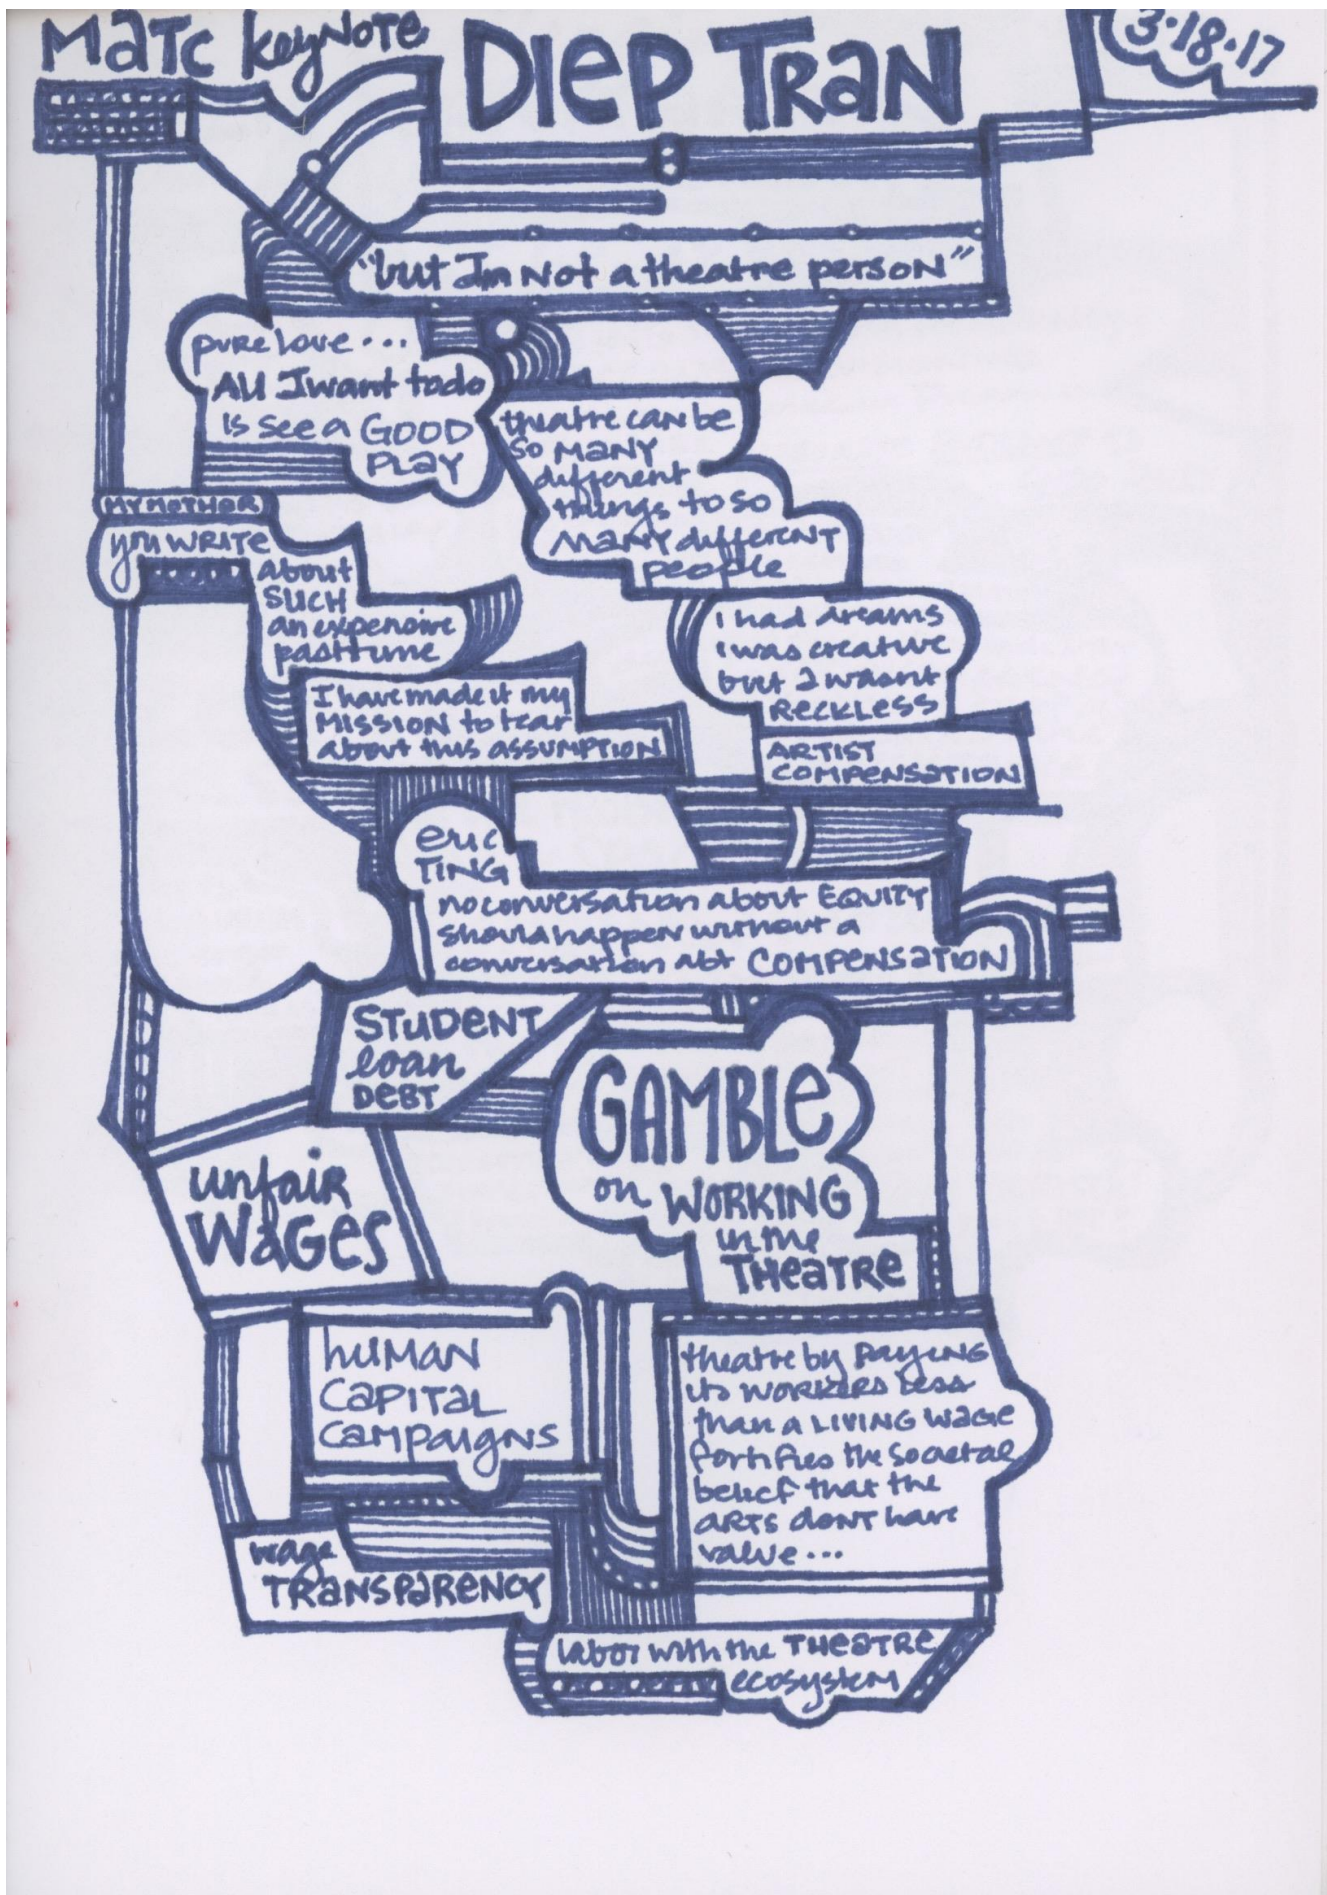 MATC keyNOTE
DIEP TRAN
3·18·17
"but Im Not a theatre person"
pure love...
All I want to do
is see a GOOD
PLAY
theatre can be
so MANY
different
things to so
MANY different
people
MY MOTHER
you WRITE
about
SUCH
an expensive
pasttime
I had dreams
i was creative
but I wasnt
RECKLESS
I have made it my
MISSION to tear
about this ASSUMPTION
ARTIST
COMPENSATION
eric
TING
no conversation about EQUITY
should happen without a
conversation abt COMPENSATION
STUDENT
loan
DEBT
GAMBLE
on WORKING
in the
THEATRE
unfair
WAGES
HUMAN
CAPITAL
CAMPAIGNS
theatre by PAYING
its WORKERS less
than a LIVING wage
fortifies the societal
belief that the
ARTS dont have
value...
wage
TRANSPARENCY
labor with the THEATRE
ecosystem